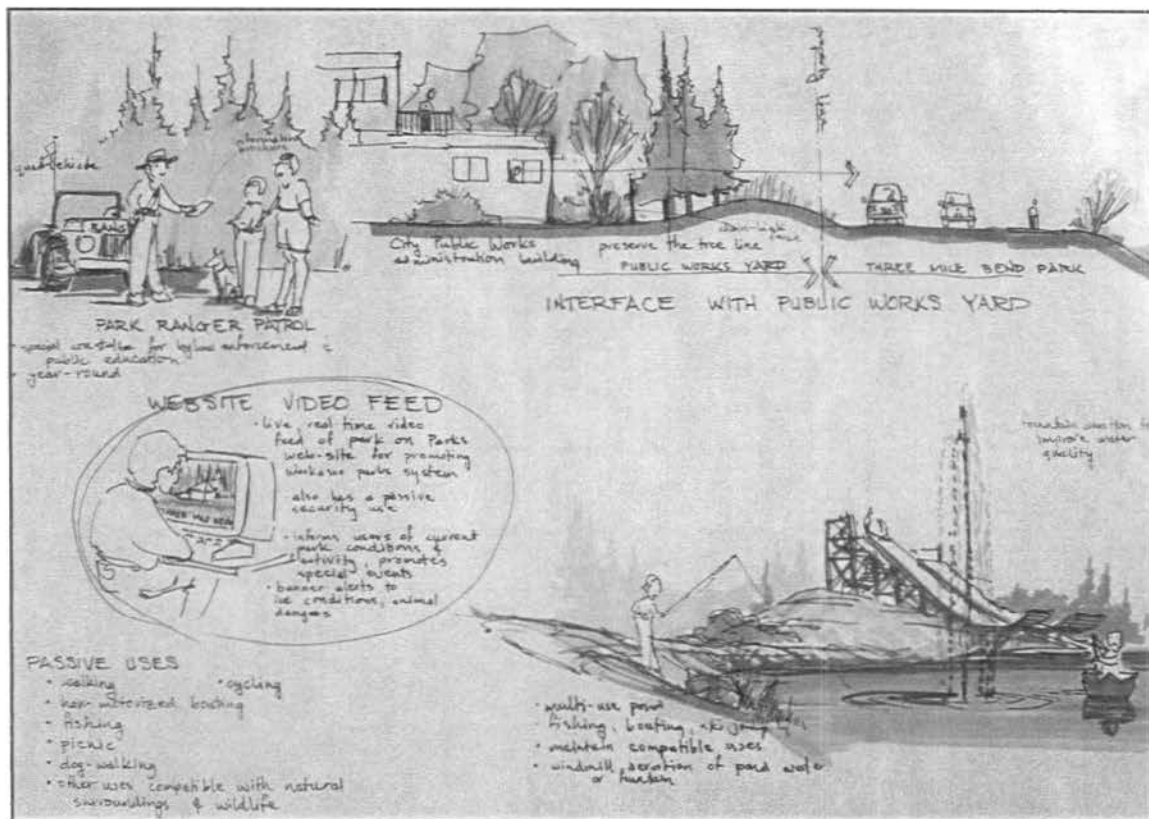 quad vehicle
information
brochure
RANG
PARK RANGER PATROL
special constable for bylaw enforcement &
public education
year-round
property line
City Public Works
administration building
preserve the tree line
PUBLIC WORKS YARD
THREE MILE BEND PARK
INTERFACE WITH PUBLIC WORKS YARD
WEBSITE VIDEO FEED
• live, real time video
feed of park on Parks
web-site for promoting
parks system
also has a passive
security use
• informs users of current
park conditions &
activity, promotes
special events
• banner alerts to
ice conditions, animal
dangers
THREE MILE BEND
fountain aeration to
improve water
quality
PASSIVE USES
• walking
• cycling
• non-motorized boating
• fishing
• picnic
• dog-walking
• other uses compatible with natural
surroundings & wildlife
• multi-use pond
• fishing, boating, ski jump
• maintain compatible uses
• windmill aeration of pond water
or fountain